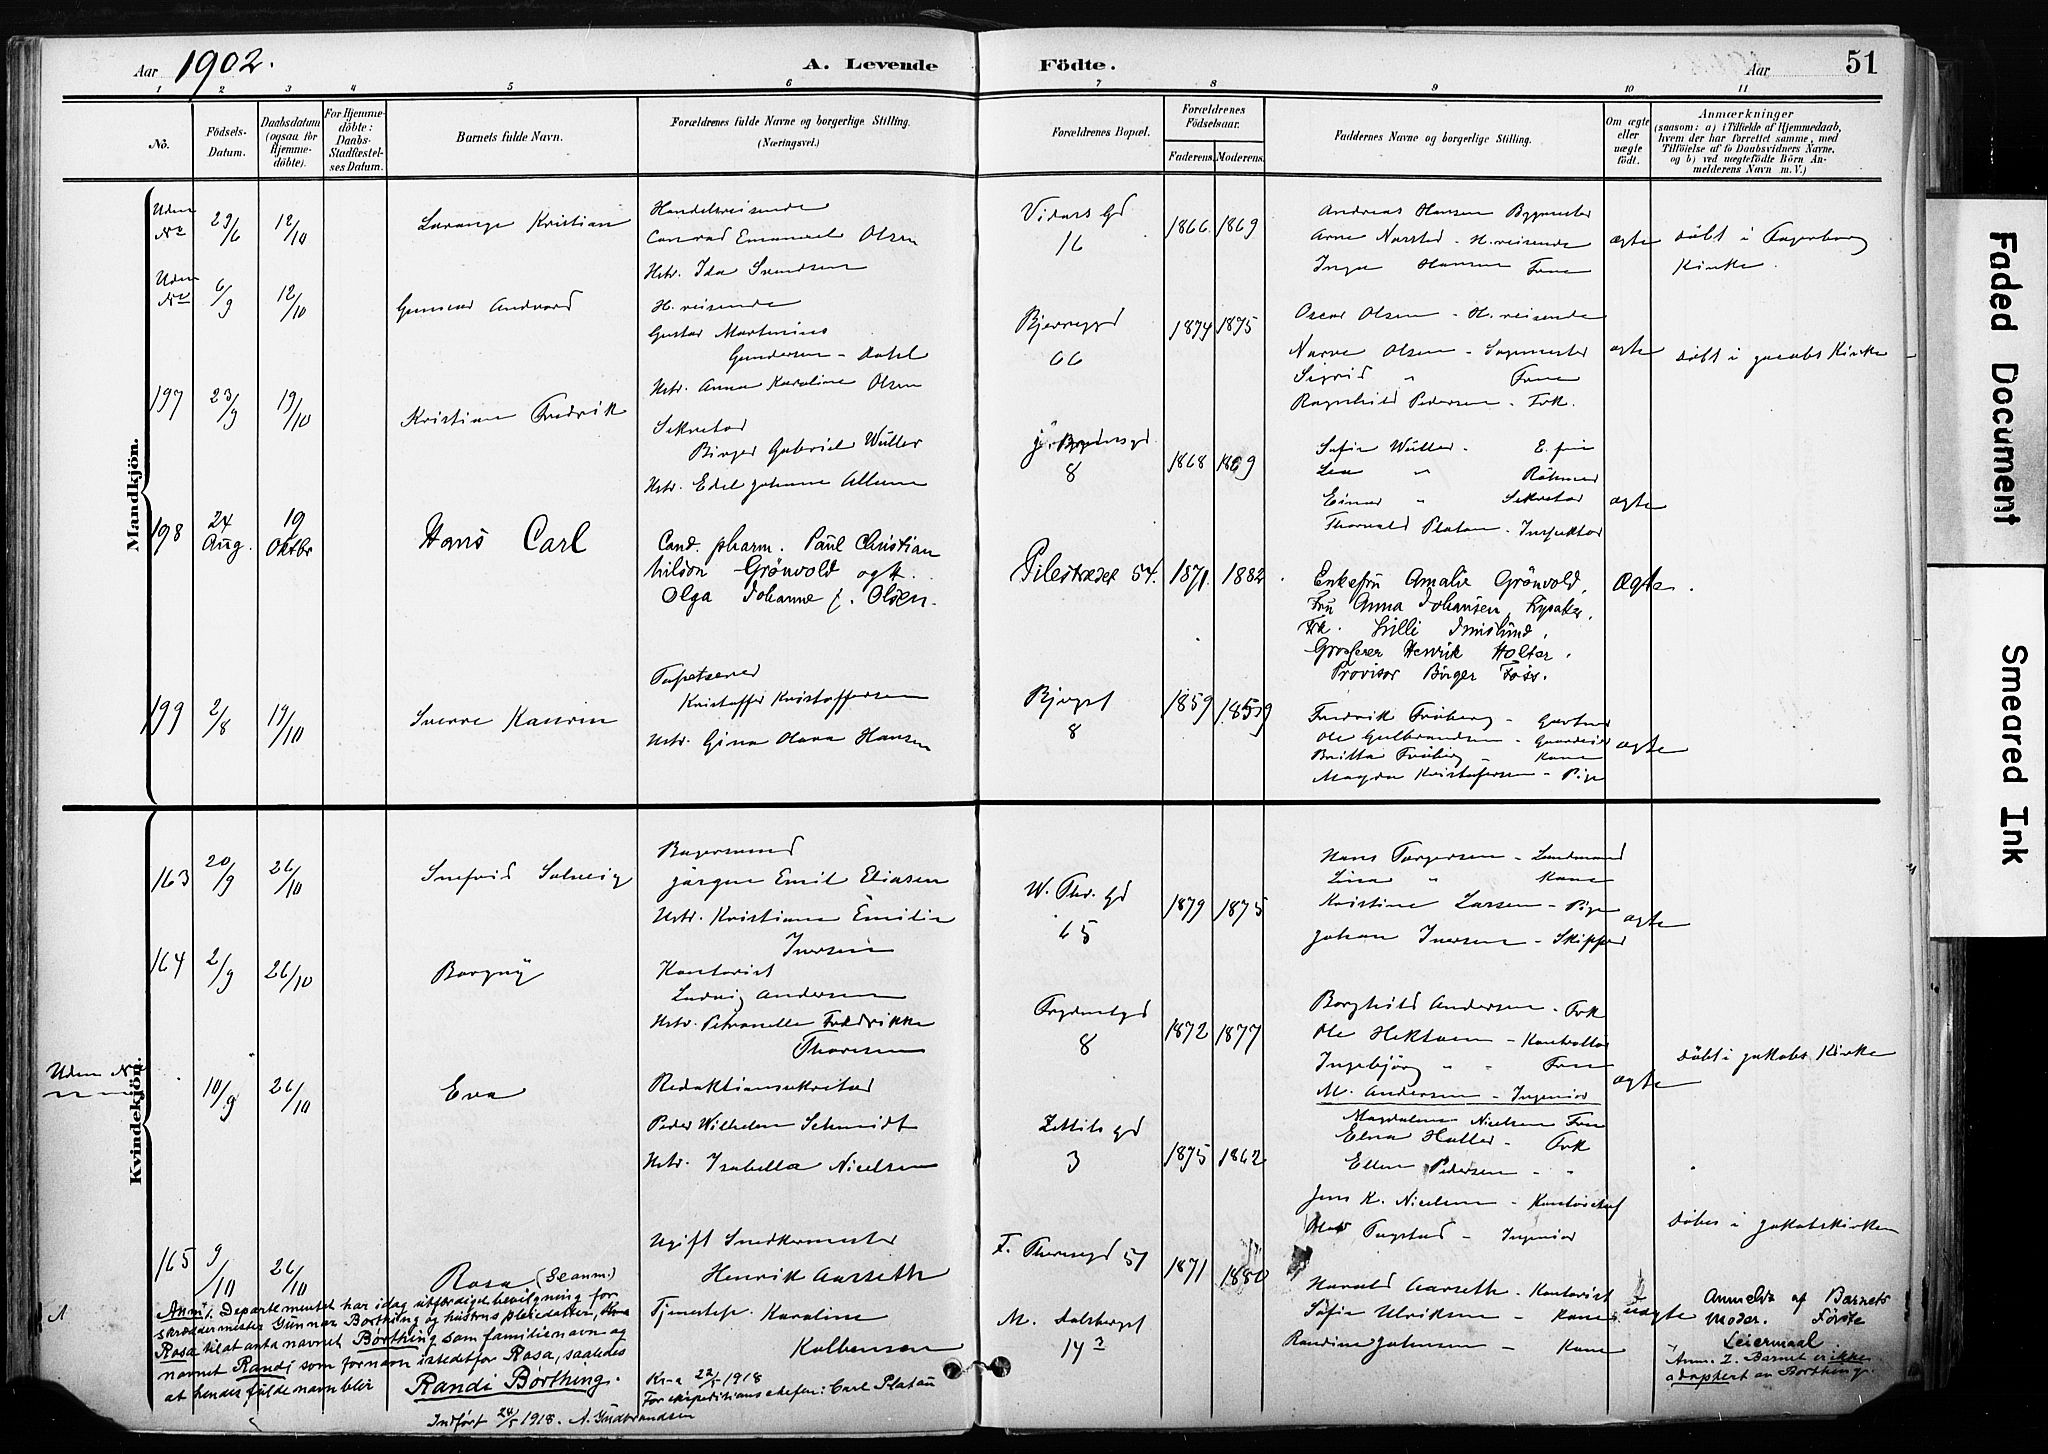 Aar 1902.
A. Levende Födte.
Aar
51
1 2 3 4 5 6 7 8 9 10 11
No.
Födsels-
Datum.
Daabsdatum
(ogsaa for
Hjemme-
döbte).
For Hjemme-
döbte:
Daabs-
Stadfæstel-
ses Datum.
Barnets fulde Navn.
Forældrenes fulde Navne og borgerlige Stilling.
(Næringsvei.)
Forældrenes Bopæl.
Forældrenes
Födselsaar.
Faderens. Moderens.
Faddernes Navne og borgerlige Stilling.
Om ægte
eller
uægte
födt.
Anmærkninger
(saasom: a) i Tilfælde af Hjemmedaab,
hvem der har forrettet samme, med
Tilföielse af to Daabsvidners Navne,
og b) ved uægtefödte Börn An-
melderens Navn m. V.)
Mandkjön.
Uden
No
29/6
12/10
Kristian
Handelsreisende
Conrad Emanuel Olsen
Hstr. Ida Svendsen
Vidars Gd
16
1866 1869
Andreas Hansen Bygmester
Arne Narsted - H.reisende
Inga Hansen Frue
ægte
döbt i Fagerborg
Kirke.
Uden
No
6/9
12/10
Gunnar Andvord
H. reisende
Gustav Martinius
Gundersen - Dahl
Hstr. Anna Karoline Olsen
Bjerregd
66
1874 1875
Oscar Olsen - H. reisende
Narve Olsen - Sagmester
Sigrid " Frue
Ragnhild Pedersen - Frk.
ægte
döbt i Jacobs Kirke
197
23/9
19/10
Kristian Fredrik
Sekretær
Birger Gabriel Wüller
Hstr. Edel Johanne Allum
8
1868 1869
Sofie Wüller - E. frue
Lea "
Einar " Sekretær
Thorvald Platou - Inspektør
ægte
198
24
Aug.
19
Oktbr
Hans Carl
Cand. pharm. Paul Christian
Wilson Grönvold og H.
Olga Johanne f. Olsen.
Pilestrædet 54.
1871. 1882.
Enkefru Amalie Grönvold,
Fru Anna Johansen,
Frk. Lilli
Grosserer Henrik Holter.
Provisor Birger Foss.
Ægte.
199
2/8
19/10
Sverre
Tapetserer
Kristoffer Kristoffersen
Hstr. Gina Olava Hansen
8
1859 1859
Fredrik Fröberg - Gartner
Ole Gulbrandsen - Gaardeier
Britta Fröberg - Kone
Magda Kristofersen - Pige
ægte
Kvindekjön.
163
20/9
26/10
Snefrid Solveig
Bagersvend
Jörgen Emil Eliasen
Hstr. Kristiane Emilie
Iversen
W. Thr. Gd
65
1879 1875
Hans Torgersen - Landmand
Lina " Kone
Kristine Larsen - Pige
Johan Iversen - Skipper
ægte
164
2/9
26/10
Borgny
Kontorist
Ludvig Andersen
Hstr. Petronelle Fredrikke
Thoresen
8
1872 1877
Borghild Andersen - Frk
Ole Hektoen - Kontrollør
Ingebjörg " " Frue
M. Andersen - Ingeniør
ægte
döbt i Jakobs Kirke
Uden No
10/9
26/10
Eva
Redaktionsekretær
Peder Wilhelm Schmidt
Hstr. Isabella Nielsen
Zetlitz gd
3
1875 1862
Magdalena Nielsen Frue
Elna Halter - Frk
Ellen Pedersen - "
Jens K. Nielsen - Kontorchef
Olav Tagstad - Ingeniør
Döbt i Jakobskirken
165
9/10
26/10
Rosa (Se anm.)
Ugift Snedkermester
Henrik Aarseth
Tjenestep. Karoline
Kolbensen
F. Thornsgd 51
M. Dalsberget
14 3
1871 1880
Harald Aarseth - Kontorist
Sofie Ulriksen - Kone
Randine Johnsen - Kone
uægte
Anmeldt af Barnets
Moder. Første
Leiermaal
Anm. 2. Barnet er ikke
adoptert av Børthing.
Anm. 1. Departementet har idag utfærdiget bevilgning for
skræddermester Gunnar Børthing og hustrus pleiedatter,
Rosa til at anta navnet Børthing som familienavn og
navnet Randi som fornavn istedetfor Rosa, saaledes
at hendes fulde navn blir Randi Børthing.
Kr-a 22/5 1918
For ekspeditionschefen: Carl Platou
Indført 24/5 1918. A. Gudbrandsen
Faded Document
Smeared Ink